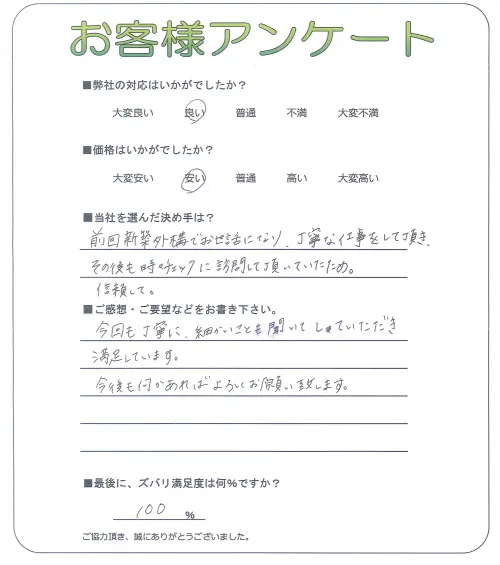 お客様アンケート
■弊社の対応はいかがでしたか？
大変良い 良い 普通 不満 大変不満
■価格はいかがでしたか？
大変安い 安い 普通 高い 大変高い
■当社を選んだ決め手は？
前回新築外構でお世話になり、丁寧な仕事をして頂き、
その後も時々チェックに訪問して頂いていたため。
信頼して。
■ご感想・ご要望などをお書き下さい。
今回も丁寧に、細かいことも聞いてしていただき
満足しています。
今後も何かあればよろしくお願い致します。
■最後に、ズバリ満足度は何％ですか？
100 ％
ご協力頂き、誠にありがとうございました。